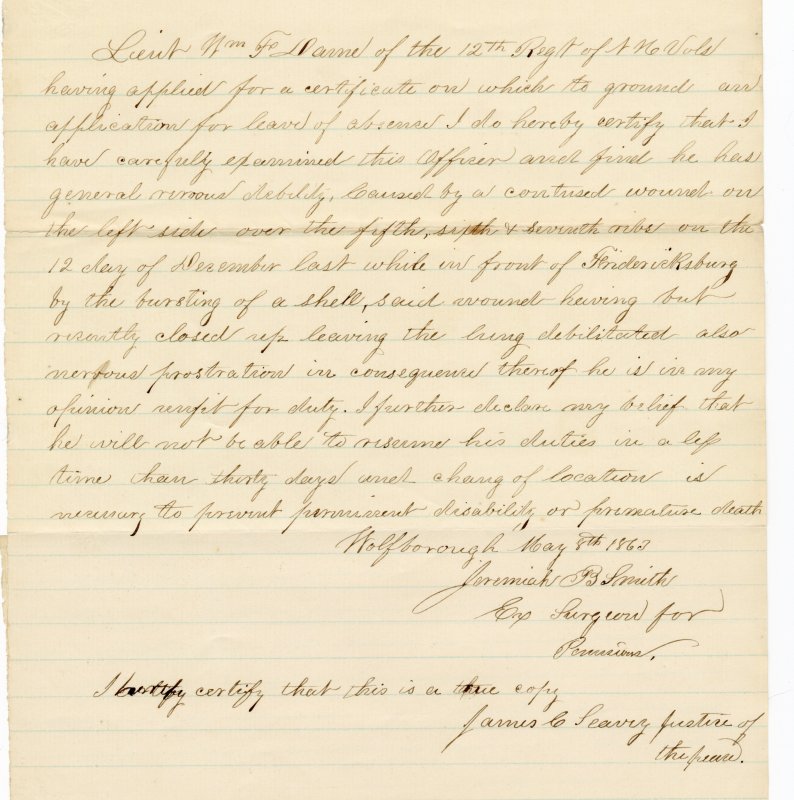 Lieut Wm F Dame of the 12th Regt of N H Vols
having applied for a certificate on which to ground an
application for leave of absence I do hereby certify that I
have carefuly examined this Officer and find he has
general nirvous debility, Caused by a contused wound on
the left side over the fifth, sixth & seventh ribs on the
12 day of December last while in front of Fridericksburg
by the bursting of a shell, said wound having but
resently closed up leaving the lung debilitated also
nervous prostration in consequence thereof he is in my
opinion unfit for duty. I further declare my belief that
he will not be able to resume his duties in a less
time than thirty days and chang of location is
necessary to prevent perminent disability or premature death
Wolfborough May 8th 1863
Jeremiah B Smith
Ex Surgeon for
Pensions.
I certify that this is a true copy
James C Seavey Justice of
the peace.